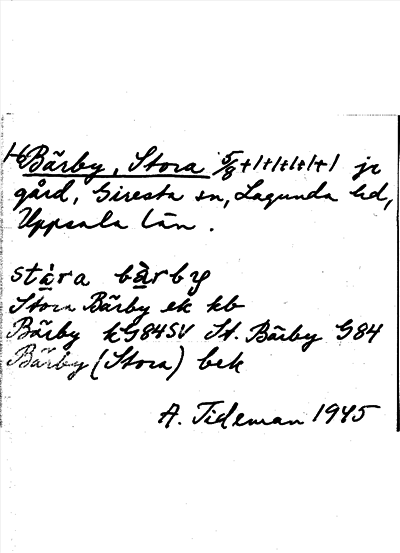 Bärby, Stora 5/8+1+1+1+1+1 je
gård, Giresta sn, Lagunda hd,
Uppsala län.
stòra bàrby
Stora Bärby ek kb
Bärby kG84SV St. Bärby G84
Bärby (Stora) bek
A. Tideman 1945